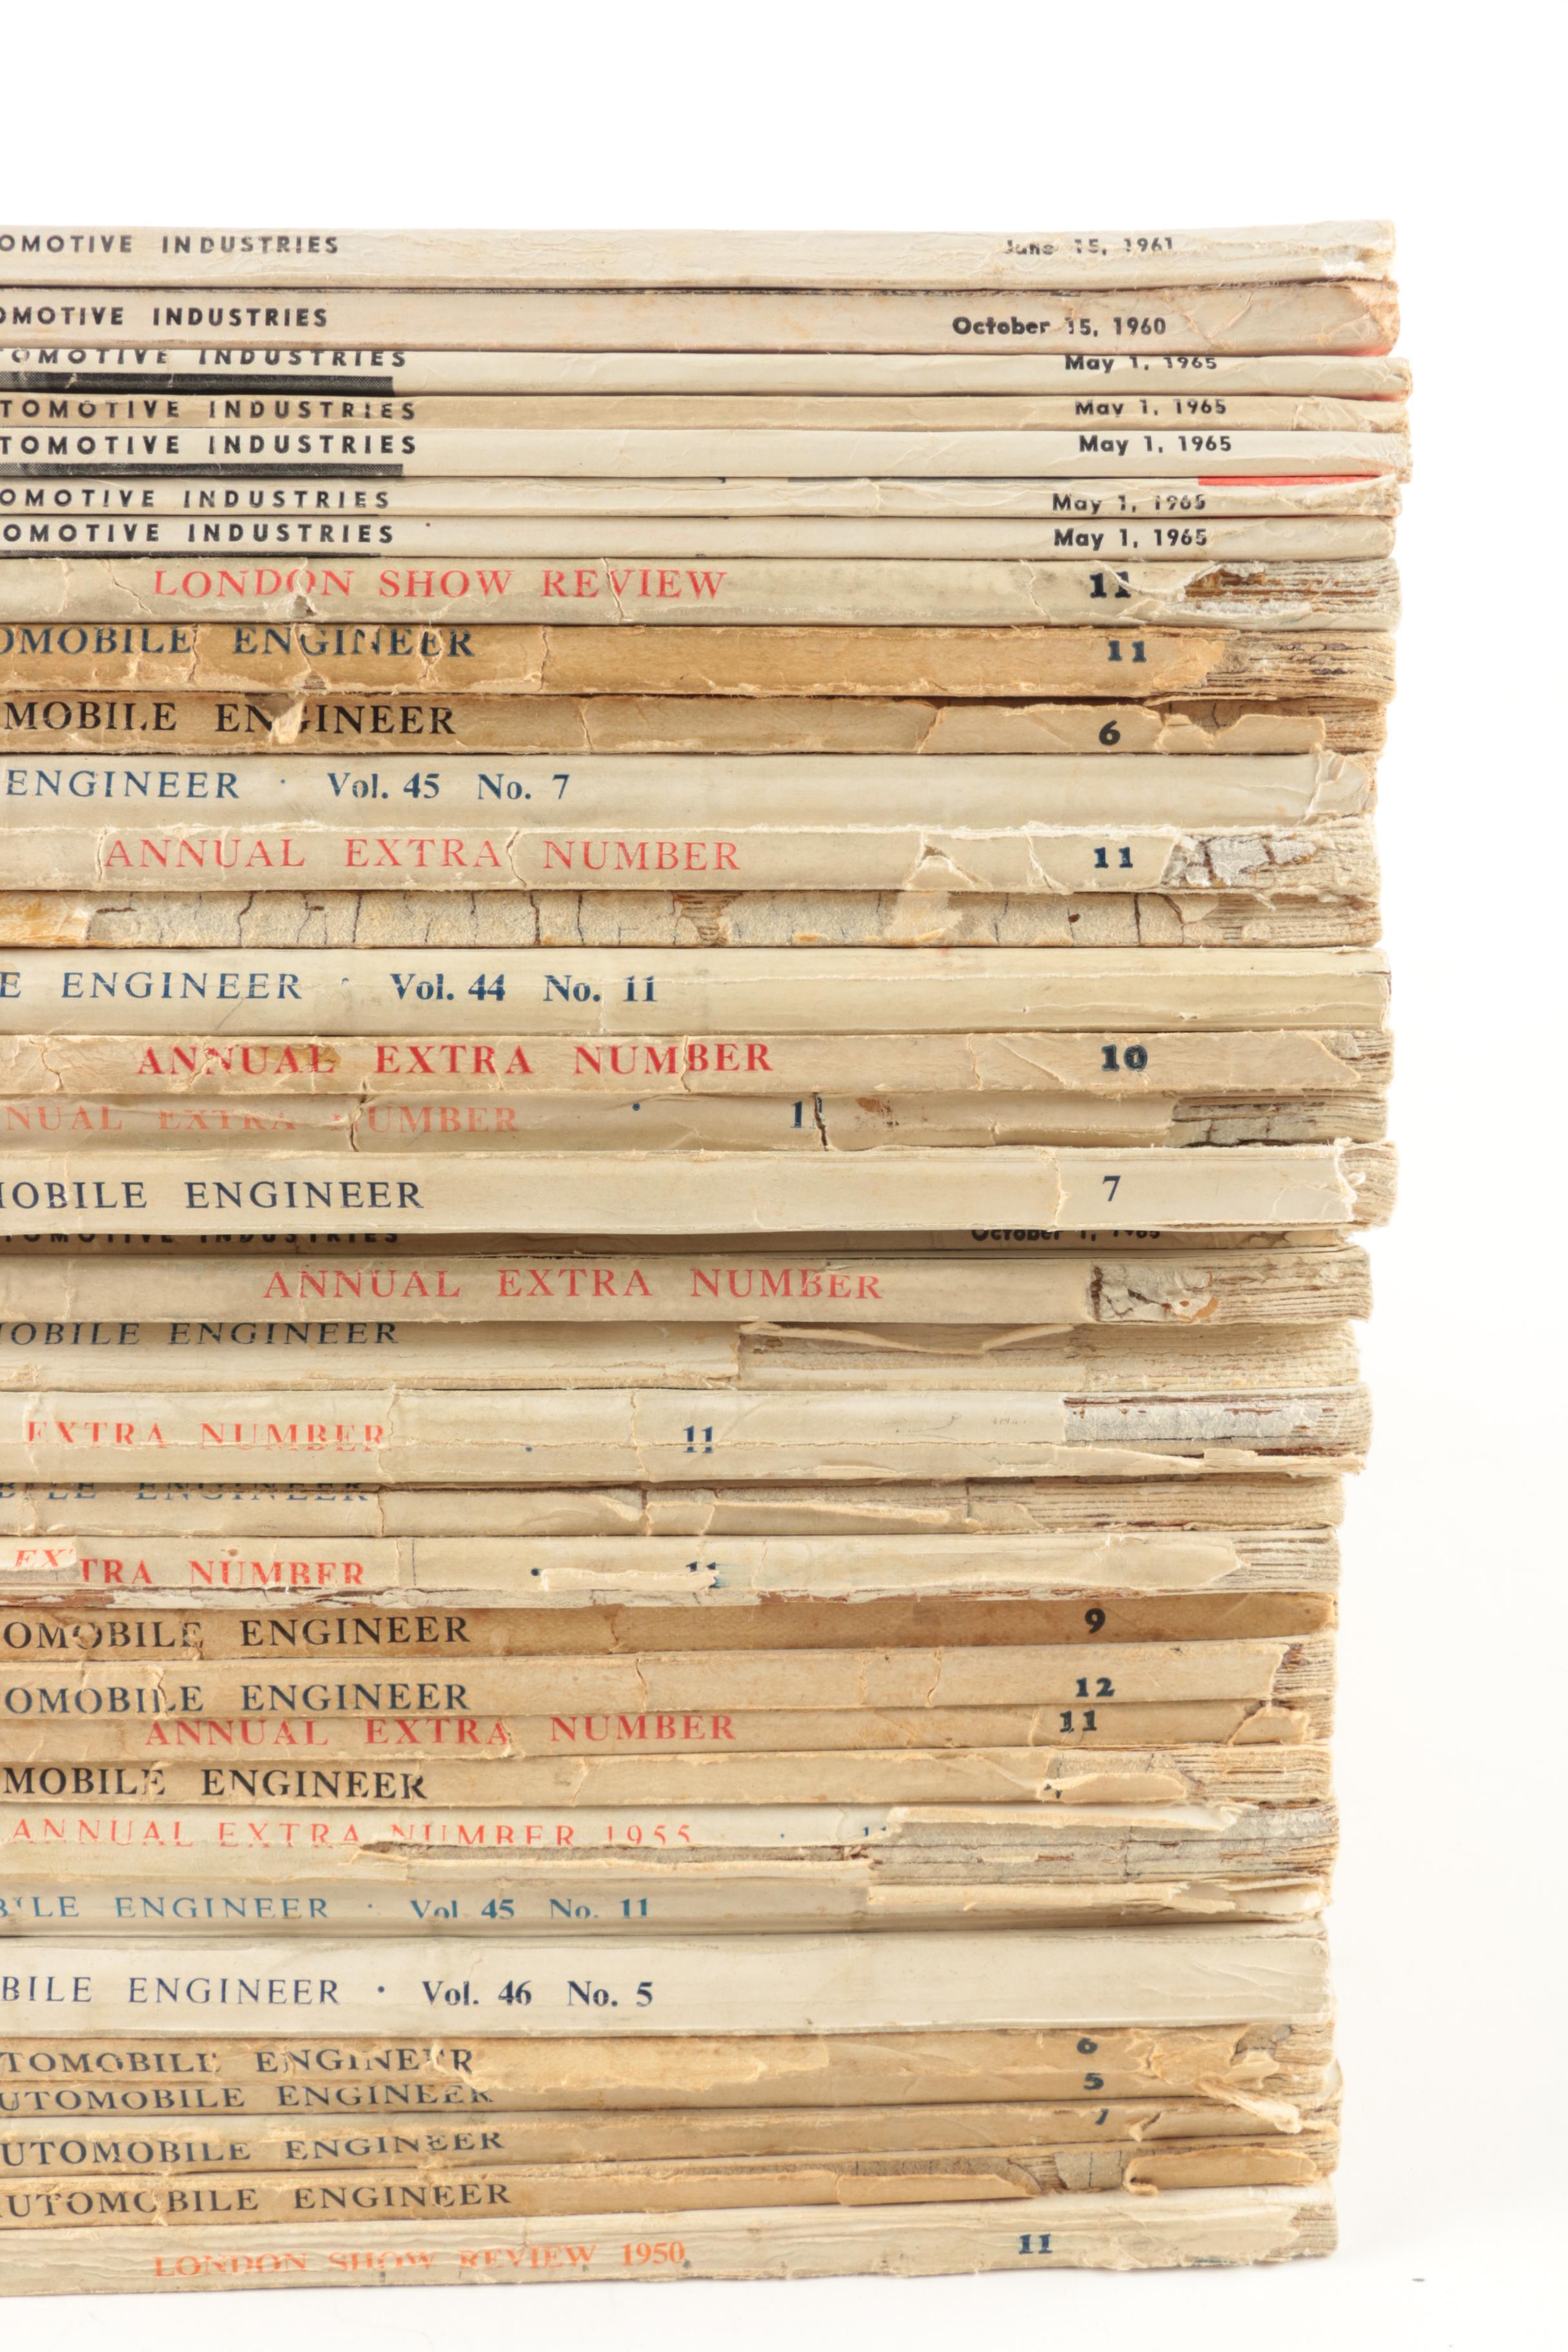 OMOTIVE INDUSTRIES June 15, 1961
OMOTIVE INDUSTRIES October 15, 1960
OMOTIVE INDUSTRIES May 1, 1965
TOMOTIVE INDUSTRIES May 1, 1965
TOMOTIVE INDUSTRIES May 1, 1965
OMOTIVE INDUSTRIES May 1, 1965
OMOTIVE INDUSTRIES May 1, 1965
LONDON SHOW REVIEW 11
OMOBILE ENGINEER 11
MOBILE ENGINEER 6
ENGINEER · Vol. 45 No. 7
ANNUAL EXTRA NUMBER 11
E ENGINEER · Vol. 44 No. 11
ANNUAL EXTRA NUMBER 10
NUAL EXTRA NUMBER · 1
MOBILE ENGINEER 7
TOMOTIVE INDUSTRIES October 1, 1965
ANNUAL EXTRA NUMBER
MOBILE ENGINEER
EXTRA NUMBER · 11
BILE ENGINEER
EXTRA NUMBER · 11
OMOBILE ENGINEER 9
OMOBILE ENGINEER 12
ANNUAL EXTRA NUMBER 11
MOBILE ENGINEER
ANNUAL EXTRA NUMBER 1955 ·
BILE ENGINEER · Vol. 45 No. 11
BILE ENGINEER · Vol. 46 No. 5
TOMOBILE ENGINEER 6
UTOMOBILE ENGINEER 5
UTOMOBILE ENGINEER 7
UTOMOBILE ENGINEER
LONDON SHOW REVIEW 1950 11